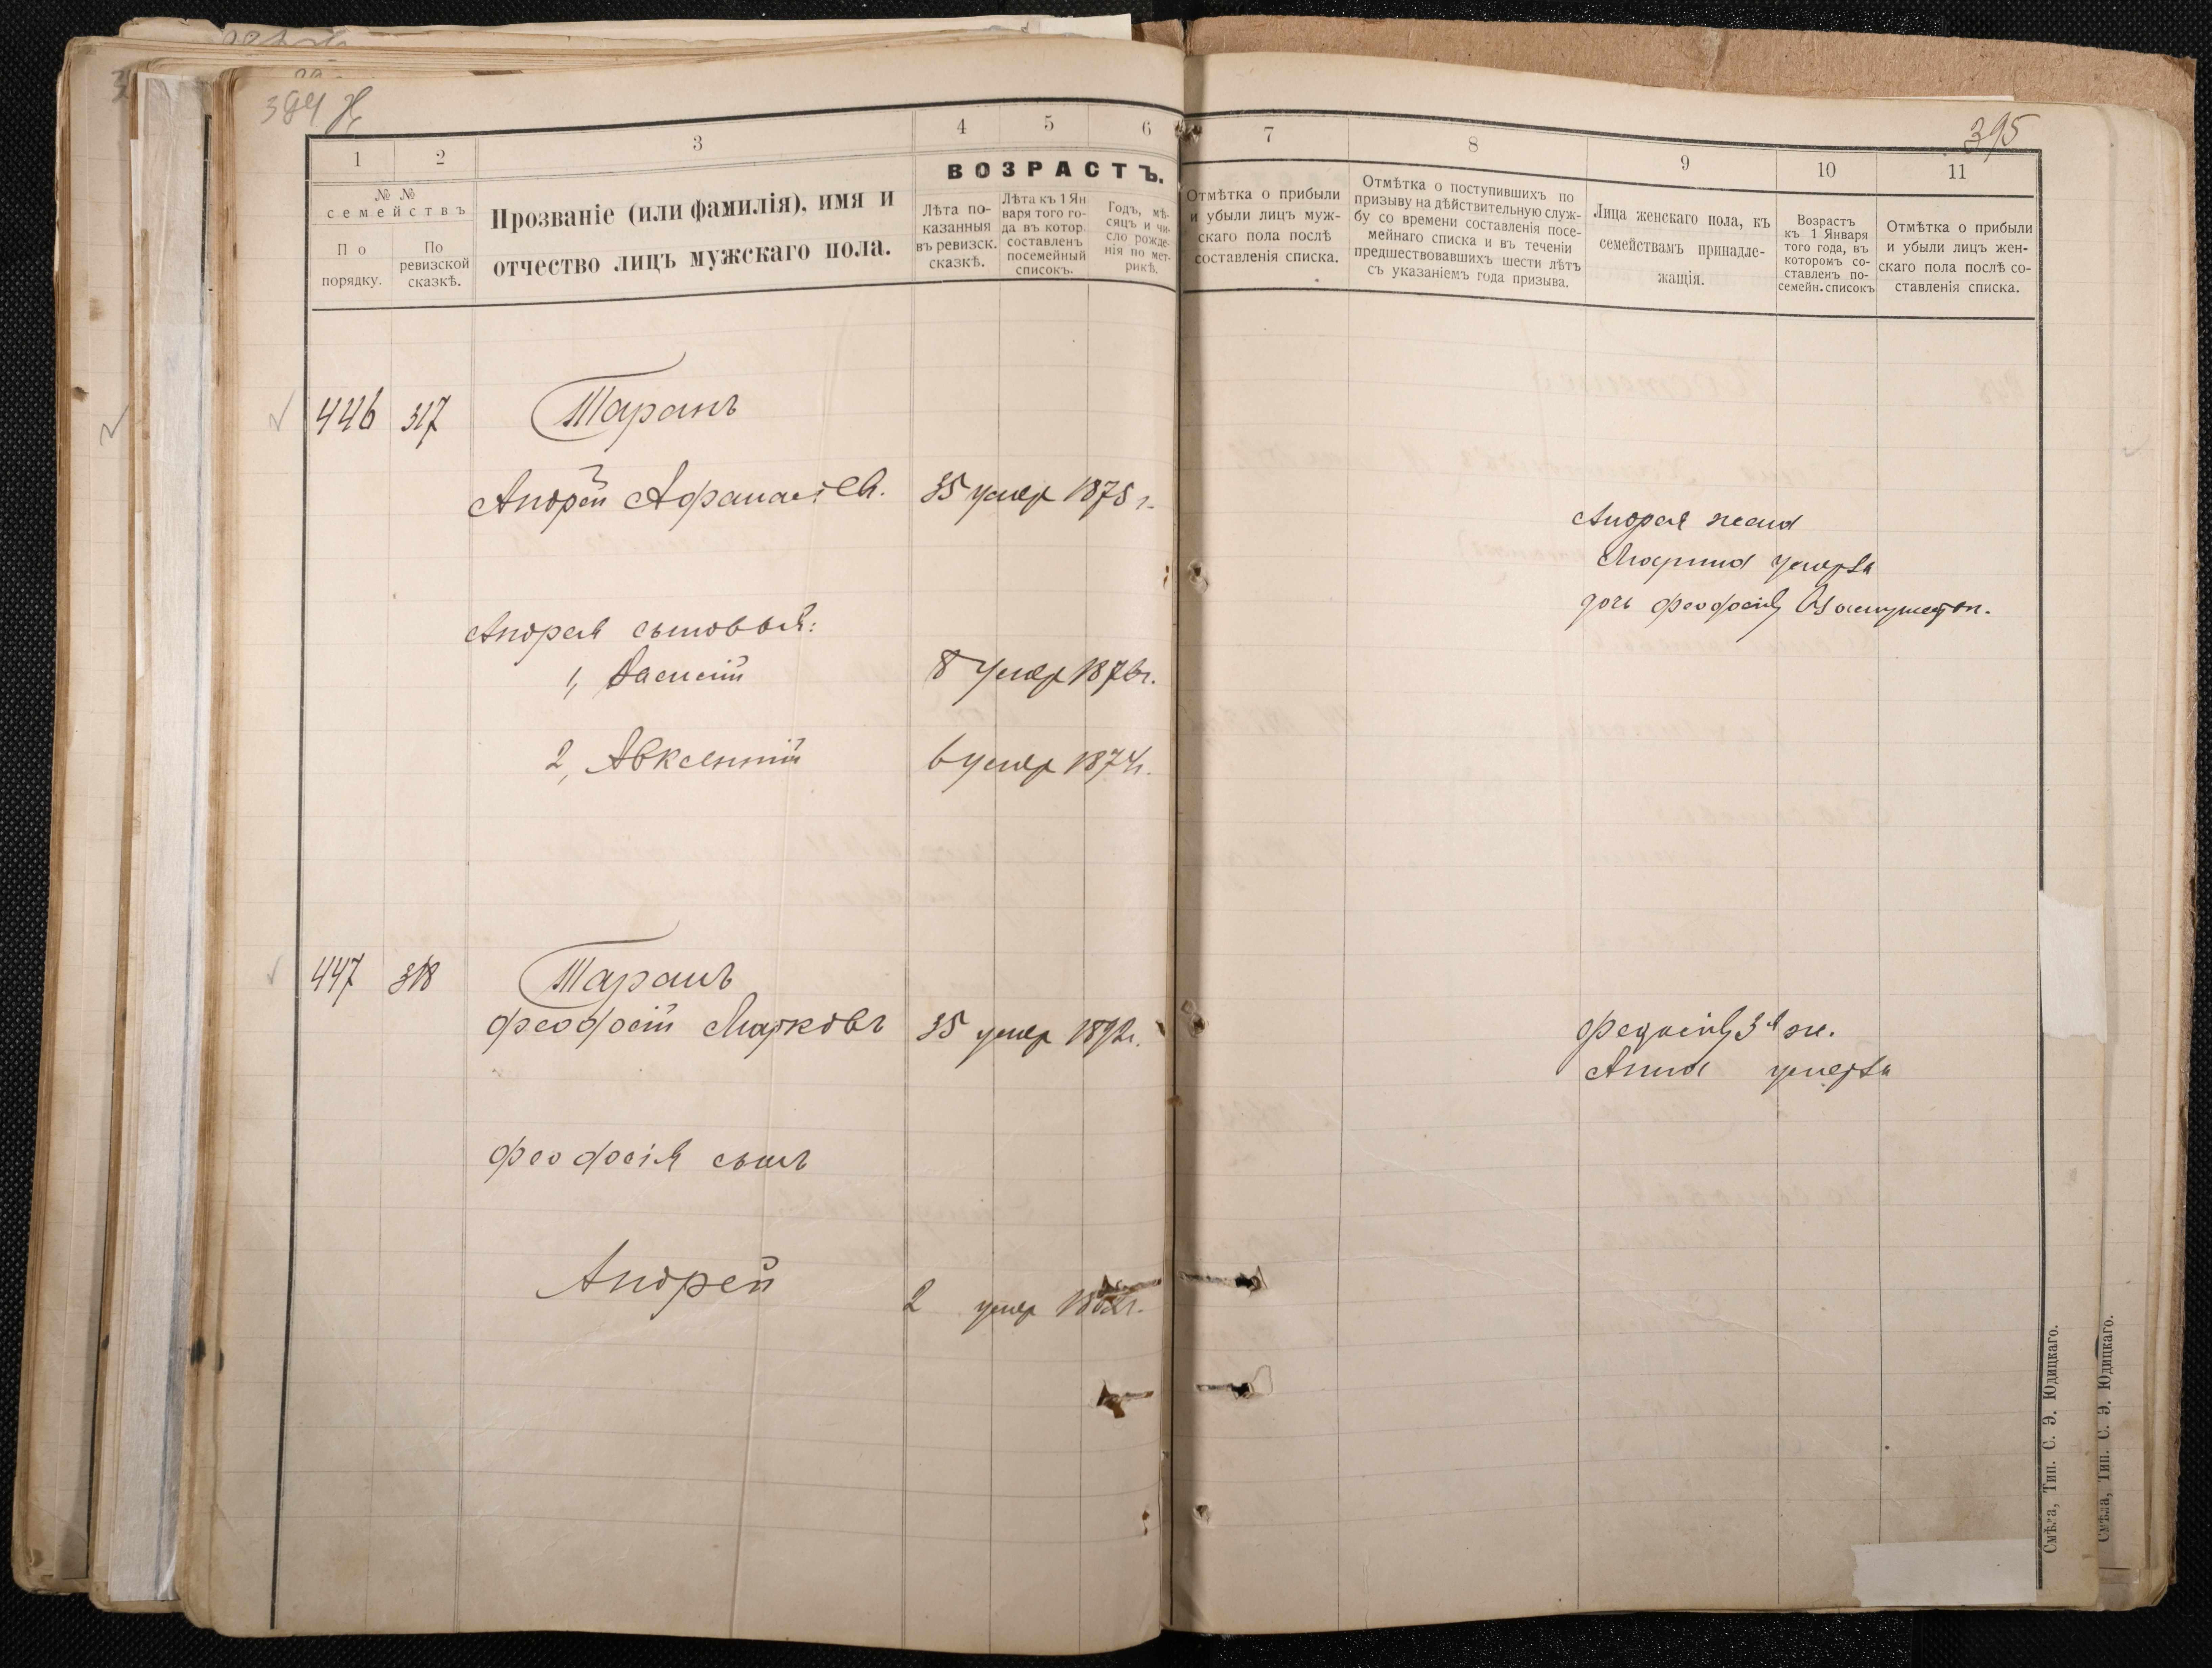 394
395
1
2
3
4
5
6
№ №
семействъ
По
порядку.
По
ревизской
сказкѣ.
Прозваніе (или фамилія), имя и
отчество лицъ мужскаго пола.
ВОЗРАСТЪ.
Лѣта по-
казанныя
въ ревизск.
сказкѣ.
Лѣта къ 1 Ян
варя того го-
да въ котор.
составленъ
посемейный
списокъ.
Годъ, мѣ-
сяцъ и чи-
сло рожде-
нія по мет-
рикѣ.
7
8
9
10
11
Отмѣтка о прибыли
и убыли лицъ муж-
скаго пола послѣ
составленія списка.
Отмѣтка о поступившихъ по
призыву на дѣйствительную служ-
бу со времени составленія посе-
мейнаго списка и въ теченіи
предшествовавшихъ шести лѣтъ
съ указаніемъ года призыва.
Лица женскаго пола, къ
семействамъ принадле-
жащія.
Возрастъ
къ 1 Января
того года, въ
которомъ со-
ставленъ по-
семейн. списокъ
Отмѣтка о прибыли
и убыли лицъ жен-
скаго пола послѣ со-
ставленія списка.
446 317 Таранъ
Андрей Афанасіев. 35 умер 1875 г.
Андрея сыновья:
1, Василій 8 умер 1876 г.
2, Авксентій 6 умер 1874 г.
447 318 Таранъ
Феодосій Марковъ 35 умер 1892 г.
Феодосія сынъ
Андрей 2 умер
Андрея жена
Марина умерла
дочь Феодосія замужем
3я ж.
Анна умерла
Смѣла, Тип. С. Э. Юдицкаго.
Смѣла, Тип. С. Э. Юдицкаго.